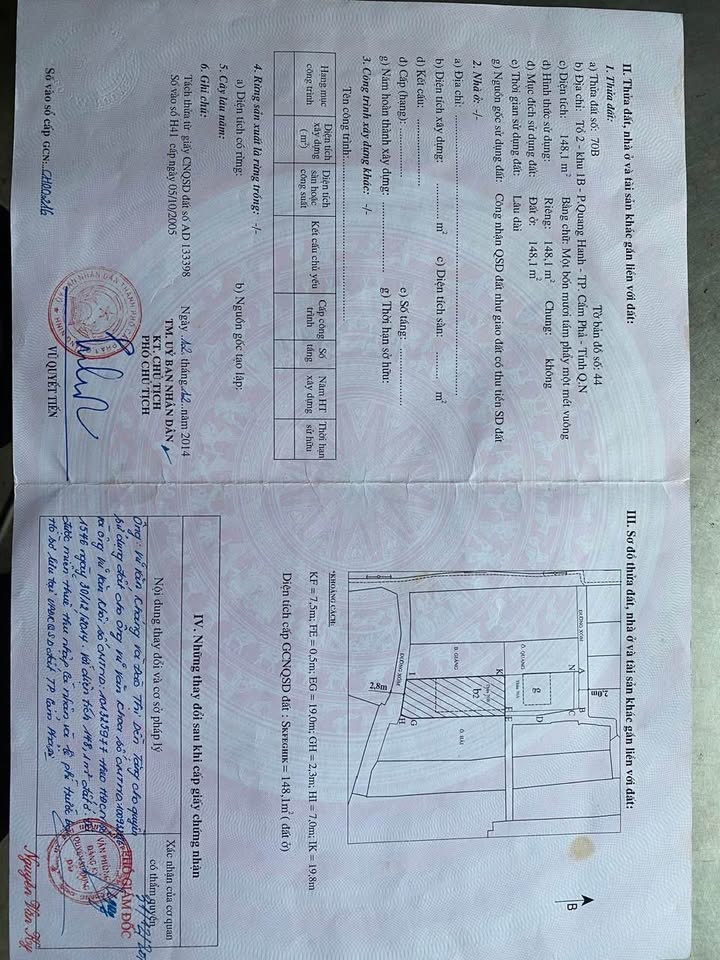 II. Thửa đất, nhà ở và tài sản khác gắn liền với đất:
1. Thửa đất:
a) Thửa đất số: 70B Tờ bản đồ số: 44
b) Địa chỉ: Tổ 2 - khu 1B - P.Quang Hanh - TP. Cẩm Phả - Tỉnh Q.N
c) Diện tích: 148,1 m² Bằng chữ: Một bốn mươi tám phẩy một mét vuông
d) Hình thức sử dụng: Riêng: 148,1 m² Chung: không
đ) Mục đích sử dụng đất: Đất ở: 148,1 m²
e) Thời gian sử dụng đất: Lâu dài
g) Nguồn gốc sử dụng đất: Công nhận QSD đất như giao đất có thu tiền SD đất
2. Nhà ở: -/-
a) Địa chỉ:
b) Diện tích xây dựng: m² c) Diện tích sàn: m²
d) Kết cấu: e) Số tầng:
đ) Cấp (hạng):
g) Năm hoàn thành xây dựng: g) Thời hạn sở hữu:
3. Công trình xây dựng khác: -/-
Tên công trình:
Hạng mục công trình
Diện tích xây dựng (m²)
Diện tích sàn hoặc công suất
Kết cấu chủ yếu
Cấp công trình
Số tầng
Năm HT xây dựng
Thời hạn sở hữu
4. Rừng sản xuất là rừng trồng: -/-
a) Diện tích có rừng: b) Nguồn gốc tạo lập:
5. Cây lâu năm:
6. Ghi chú:
Tách thửa từ giấy CNQSD đất số AD 133398
Số vào sổ H41 cấp ngày 05/10/2005
Ngày 12 tháng 12 năm 2014
TM. UỶ BAN NHÂN DÂN
KT. CHỦ TỊCH
PHÓ CHỦ TỊCH
VŨ QUYẾT TIẾN
Số vào sổ cấp GCN: CH00216
III. Sơ đồ thửa đất, nhà ở và tài sản khác gắn liền với đất:
B
2,0m
ĐƯỜNG XÓM
A
B
N
C
g
D
Ô. QUANG
K
E
F
b2
B. GIẢNG
Ô. HẢI
I
G
H
ĐƯỜNG XÓM
2,8m
*KHOẢNG CÁCH:
KF = 7,5m; FE = 0,5m; EG = 19,0m; GH = 2,3m; HI = 7,0m; IK = 19,8m
Diện tích cấp GCNQSD đất : SKFEGHIK = 148,1m² ( đất ở)
IV. Những thay đổi sau khi cấp giấy chứng nhận
Nội dung thay đổi và cơ sở pháp lý
Xác nhận của cơ quan có thẩm quyền
Ông: Vũ Văn và bà: Thị Dền tặng cho quyền
sử dụng đất cho ông Vũ Văn Khoa số CMTND
và ông Vũ Văn số CMTND 101323977 theo HĐCN
1546 ngày 30/12/2014 Với diện tích 148,1m² đất ở
được miễn thuế thu nhập cá nhân và lệ phí trước bạ
Hồ sơ lưu tại VPĐKQSD đất TP Cẩm Phả
PHÓ GIÁM ĐỐC
VĂN PHÒNG
ĐĂNG KÝ
Nguyễn Văn